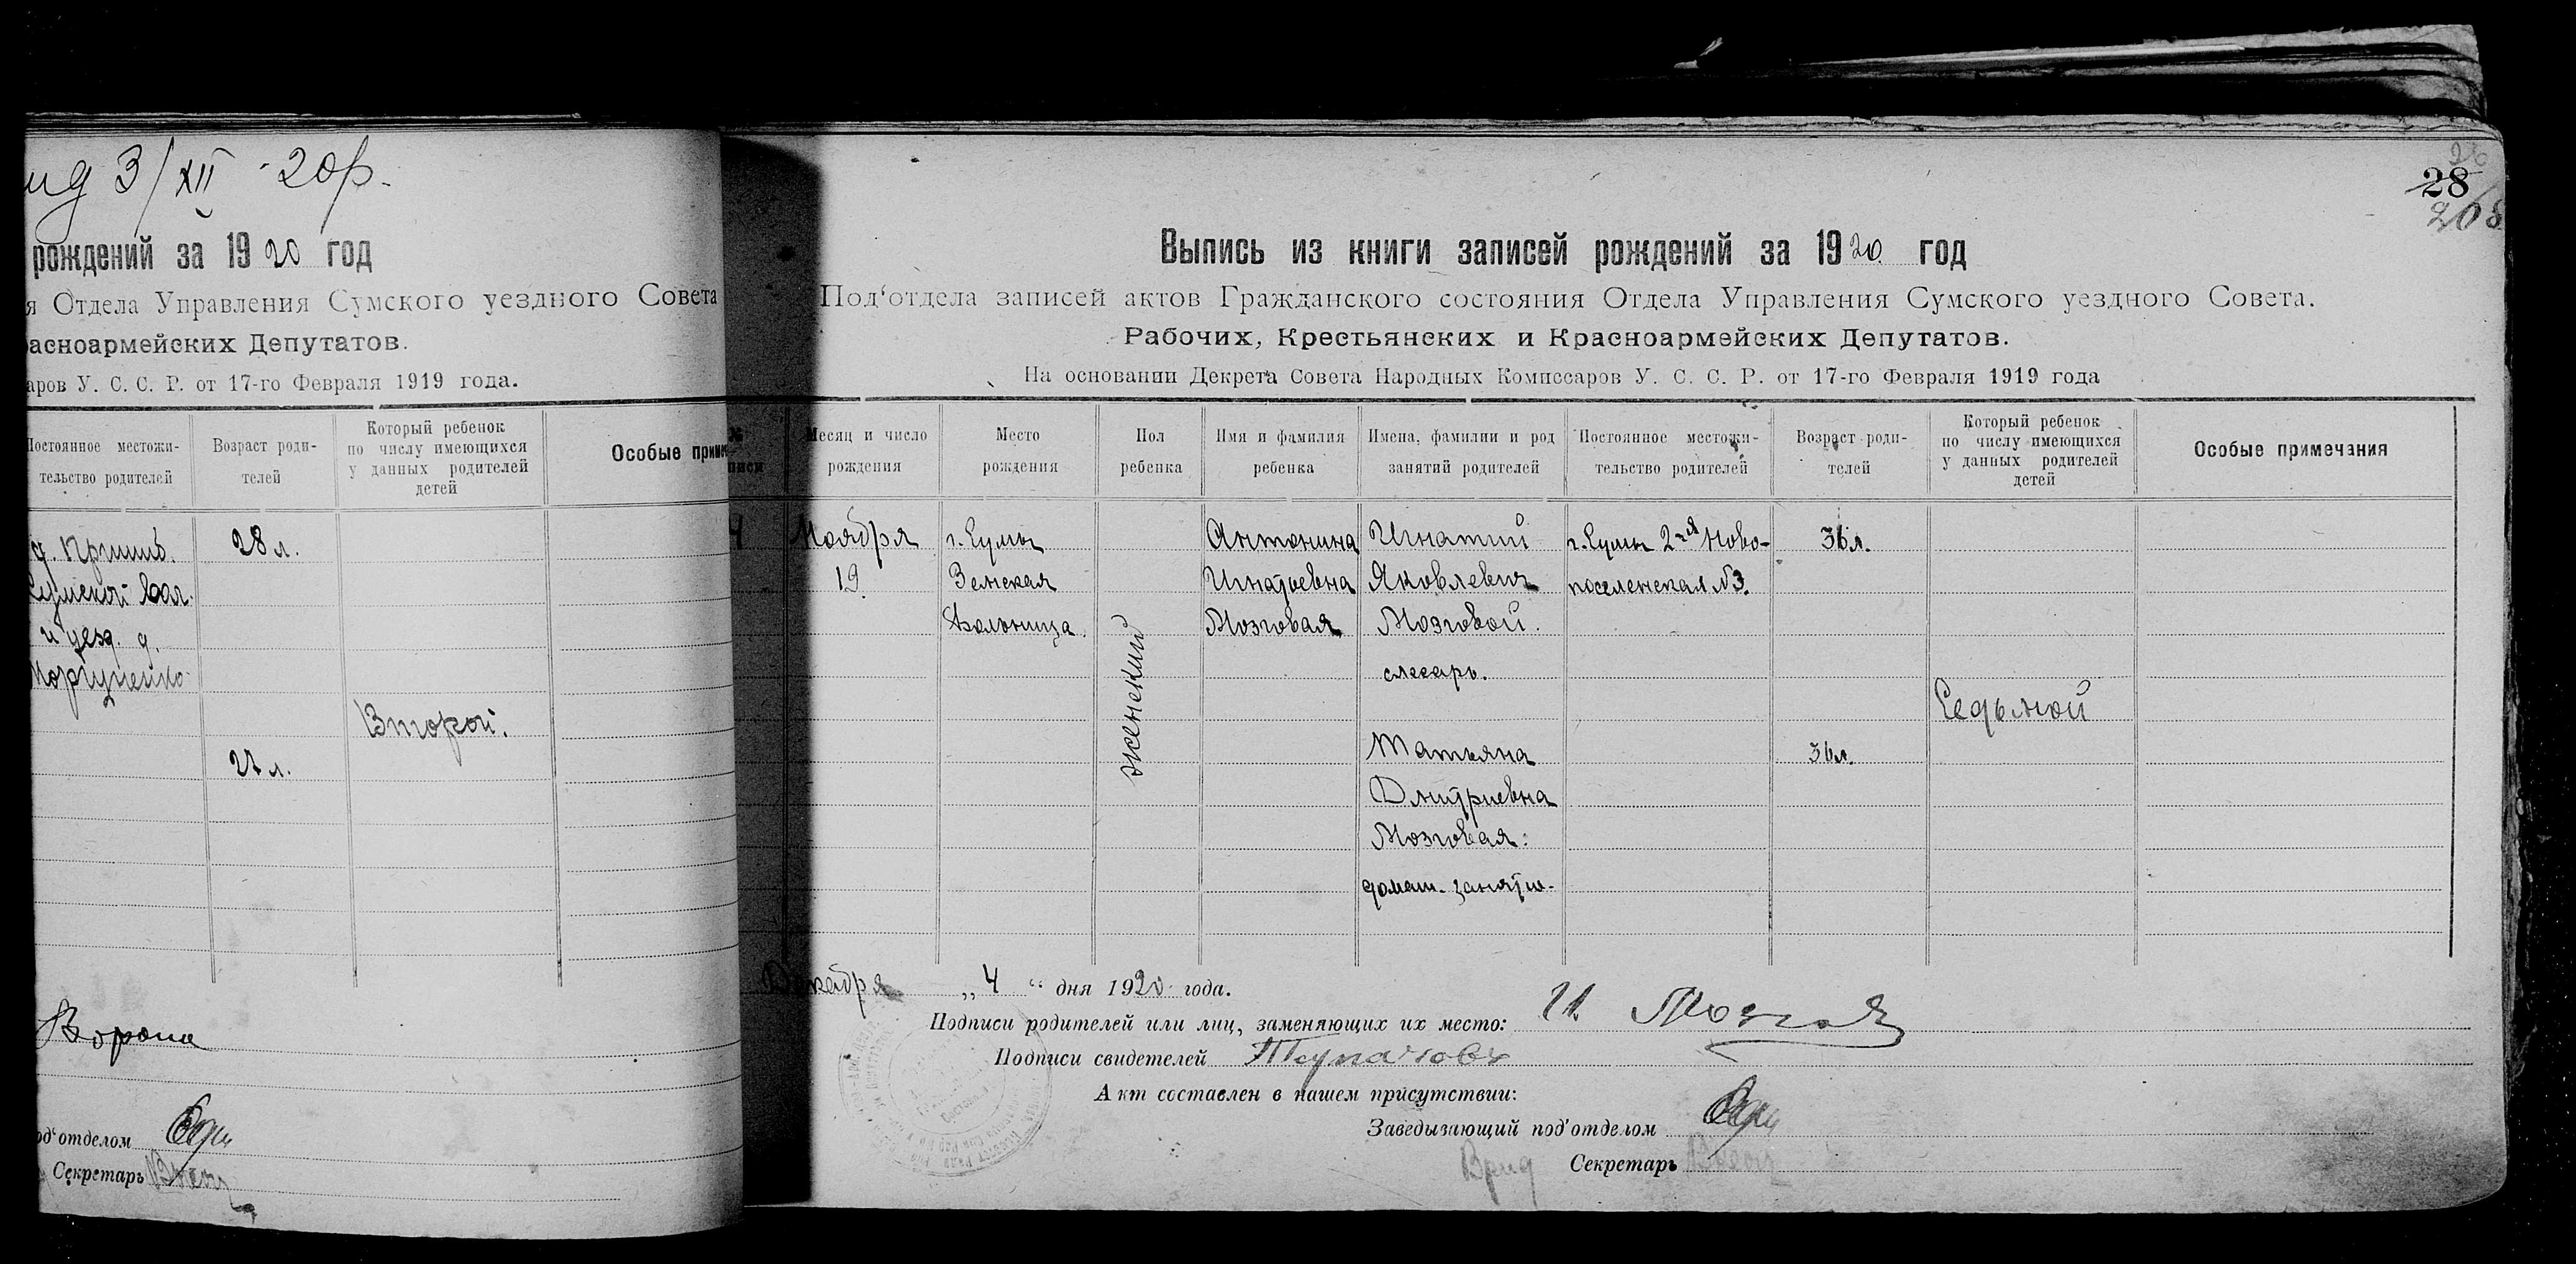 3/XII -20р.
рождений за 1920 год
я Отдела Управления Сумского уездного Совета
асноармейских Депутатов.
аров У. С. С. Р. от 17-го Февраля 1919 года.
Постоянное местожи-
тельство родителей
Возраст роди-
телей
Который ребенок
по числу имеющихся
у данных родителей
детей
Особые приме
28 л.
Сумской вол.
и уезд. д.
Второй.
27 л.
Ворона
од'отделом
Секретарь
26
28
268
Выпись из книги записей рождений за 1920. год
Под'отдела записей актов Гражданского состояния Отдела Управления Сумского уездного Совета.
Рабочих, Крестьянских и Красноармейских Депутатов.
На основании Декрета Совета Народных Комиссаров У. С. С. Р. от 17-го Февраля 1919 года
№
писи
Месяц и число
рождения
Место
рождения
Пол
ребенка
Имя и фамилия
ребенка
Имена, фамилии и род
занятий родителей
Постоянное местожи-
тельство родителей
Возраст роди-
телей
Который ребенок
по числу имеющихся
у данных родителей
детей
Особые примечания
4
Ноября
19
г. Сумы
Земская
больница.
женский
Антонина
Игнатьевна
Мозговая
Игнатий
Яковлевич
Мозговой.
слесарь.
Татьяна
Дмитриевна
Мозговая:
домаш. заняти-
г. Сумы 2-ая Ново-
поселенская №3.
36 л.
36 л.
Седьмой
Декабря „4“ дня 1920 года.
Подписи родителей или лиц, заменяющих их место: И. Мозгой
Подписи свидетелей
Акт составлен в нашем присутствии:
Заведывающий под'отделом
Врид Секретарь